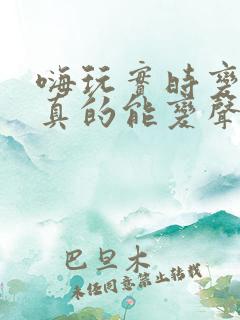 嗨玩實時變
真的能變聲
巴旦木
未經同意禁止转载